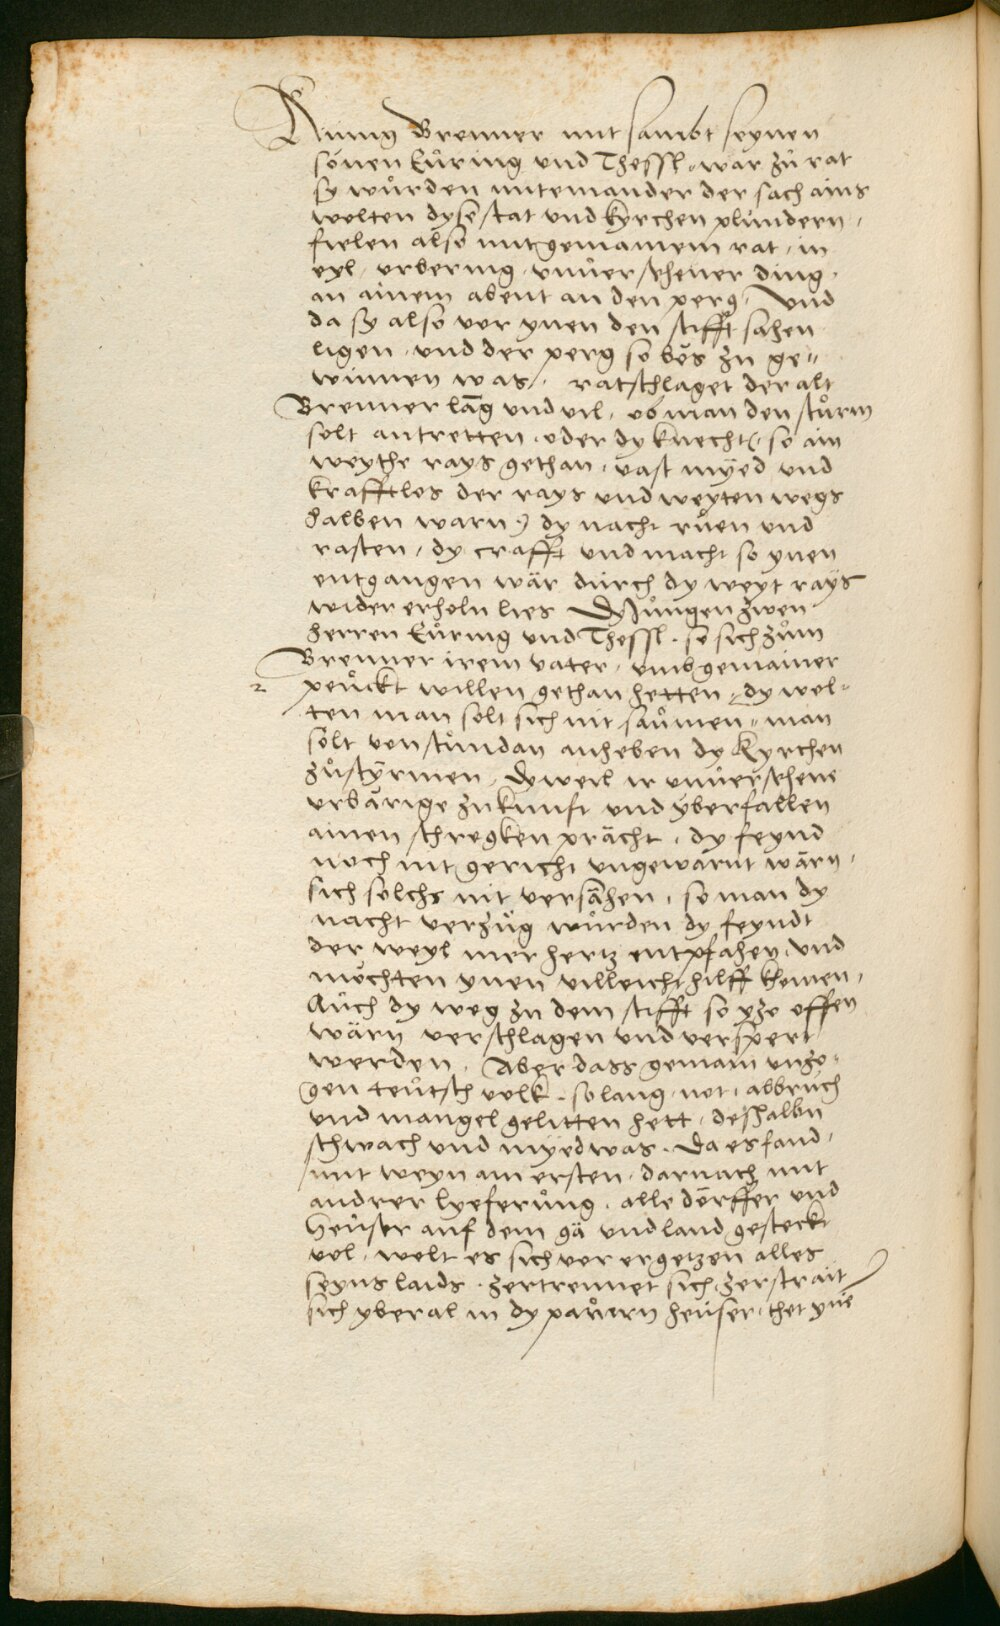 Künig Brenner mit sambt seynen
sönen Eůring und Thessl, war zů rat
sy wůrden miteinander der sach ains
wolten dyse stat und kyrchen plůndern,
fielen also mit gemainem rat, in
eyl, urbering, unůersehener ding,
an ainem abent an den perg, Und
da sy also vor ynen den stifft sahen
ligen, und der perg so bös zu ge„
winnen was, ratschlaget der alt
Brenner lang und vil, ob man den stůrm
solt antretten, oder dy knecht, so ain
weythe rays gethan, vast myed und
krafftlos der rays und weyten wegs
halben warn) dy nacht růen und
rasten, dy crafft und macht so ynen
entgangen wär durch dy weyt rays
wider erholn lies Dy iůngen zwen
herren Eůring und Thessl, so sich zům
Brenner irem vater, umb gemainer
2 peůckt willen gethan hetten, dy wol„
ten man solt sich nit saůmen, man
solt von stůndan anheben dy Kyrchen
zů stÿrmen, dyweil ir unůersehene
urbärige zukunft und ÿberfallen
ainen schregken prächt, dy feynd
noch nit gericht ungewarnt wärn,
sich solchs nit versähen, so man dy
nacht verzůg wůrden dy feyndt
der weyl mer hertz entpfahen, und
möchten ynen villeicht hilff khomen,
Aůch dy weg zu dem stifft so yze offen
wärn verschlagen und verspert
werden, Aber dass gemain unzo„
gen teůtsch volk, so lang, not, abbruch
und mangel gelitten hett, deshalbn
schwach und myed was, da es fand,
mit weyn am ersten, darnach mit
andrer lyeferůng, alle dörffer und
heůser auf dem gä und land gesteckt
vol, wolt es sich vor ergetzen alles
seyns laids, zertrennet sich, zerstrait
sich yberal in dy paůrn heuser, thet yne